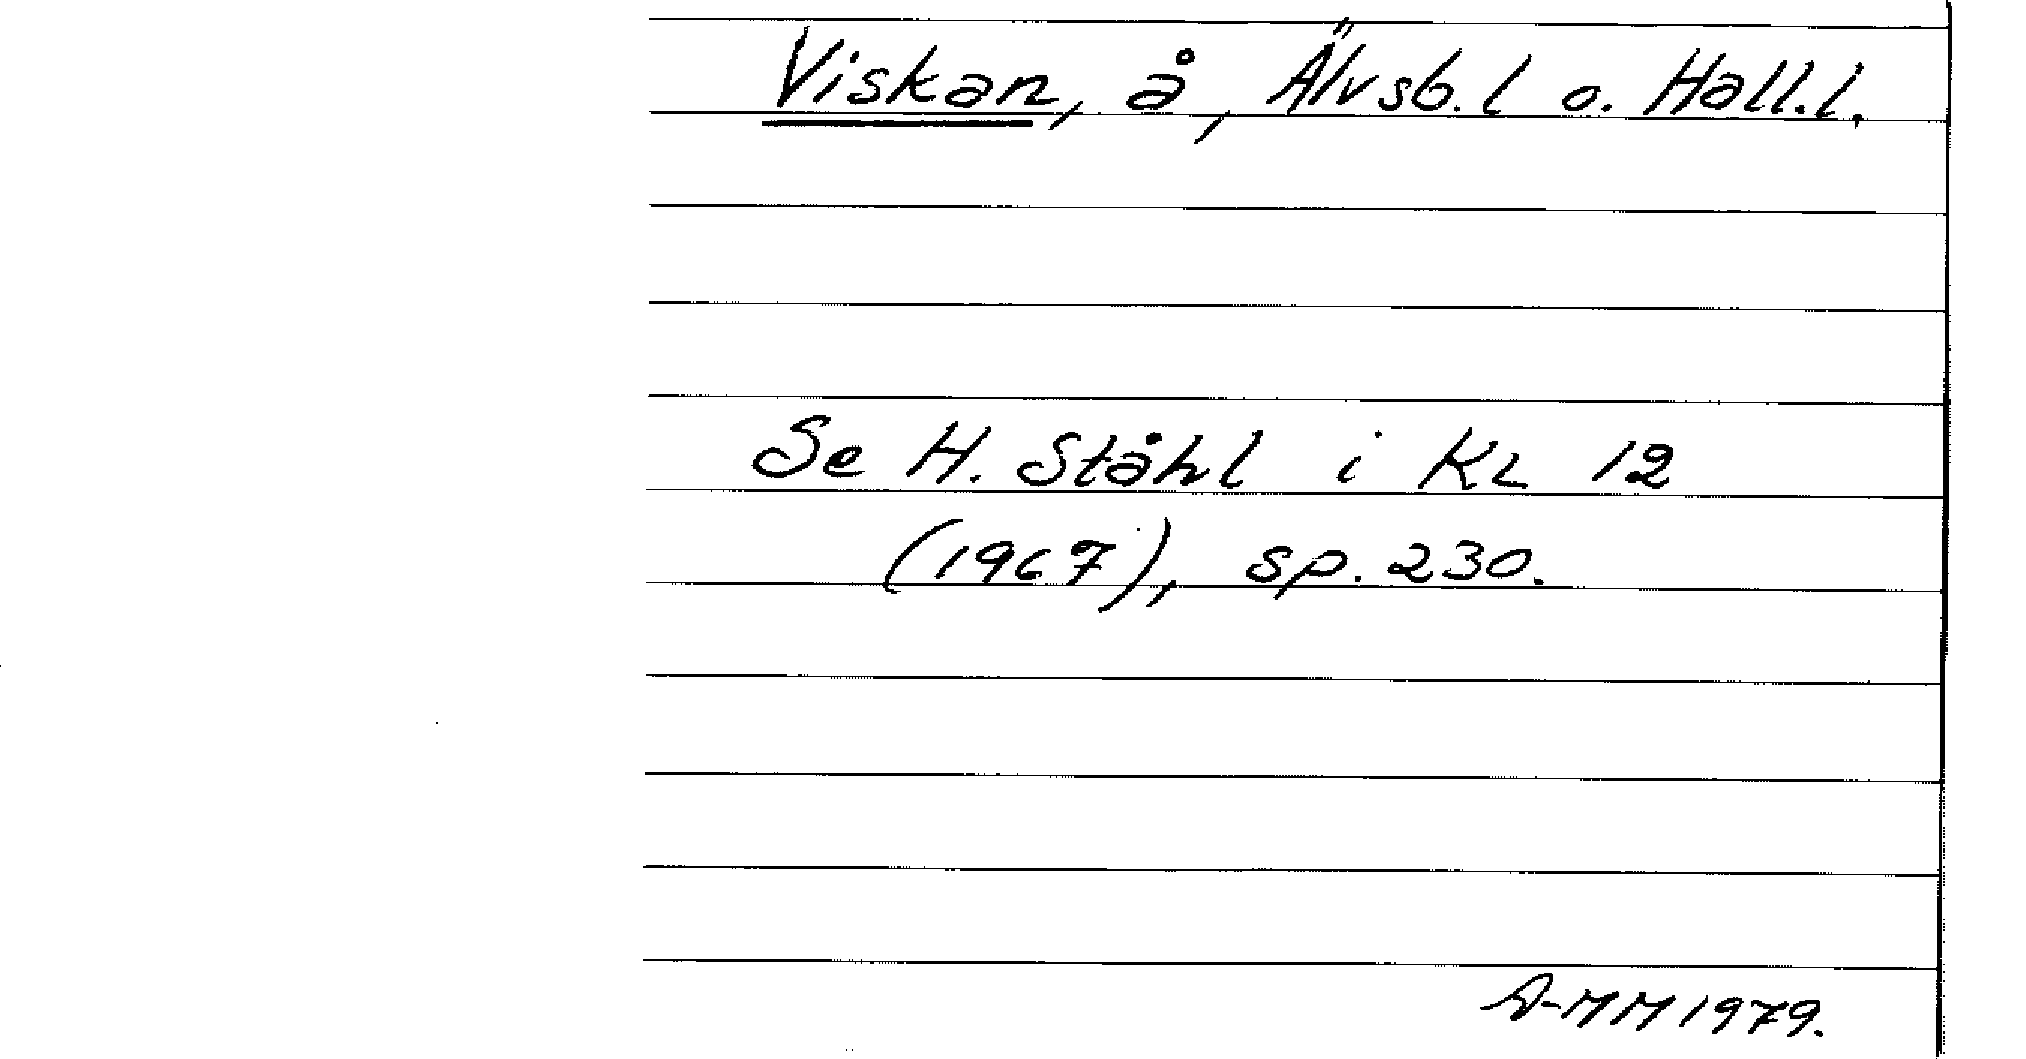 Viskan, å, Älvsb. l o. Hall. l.
Se H. Ståhl i KL 12
(1967), sp. 230.
A-MM 1979.